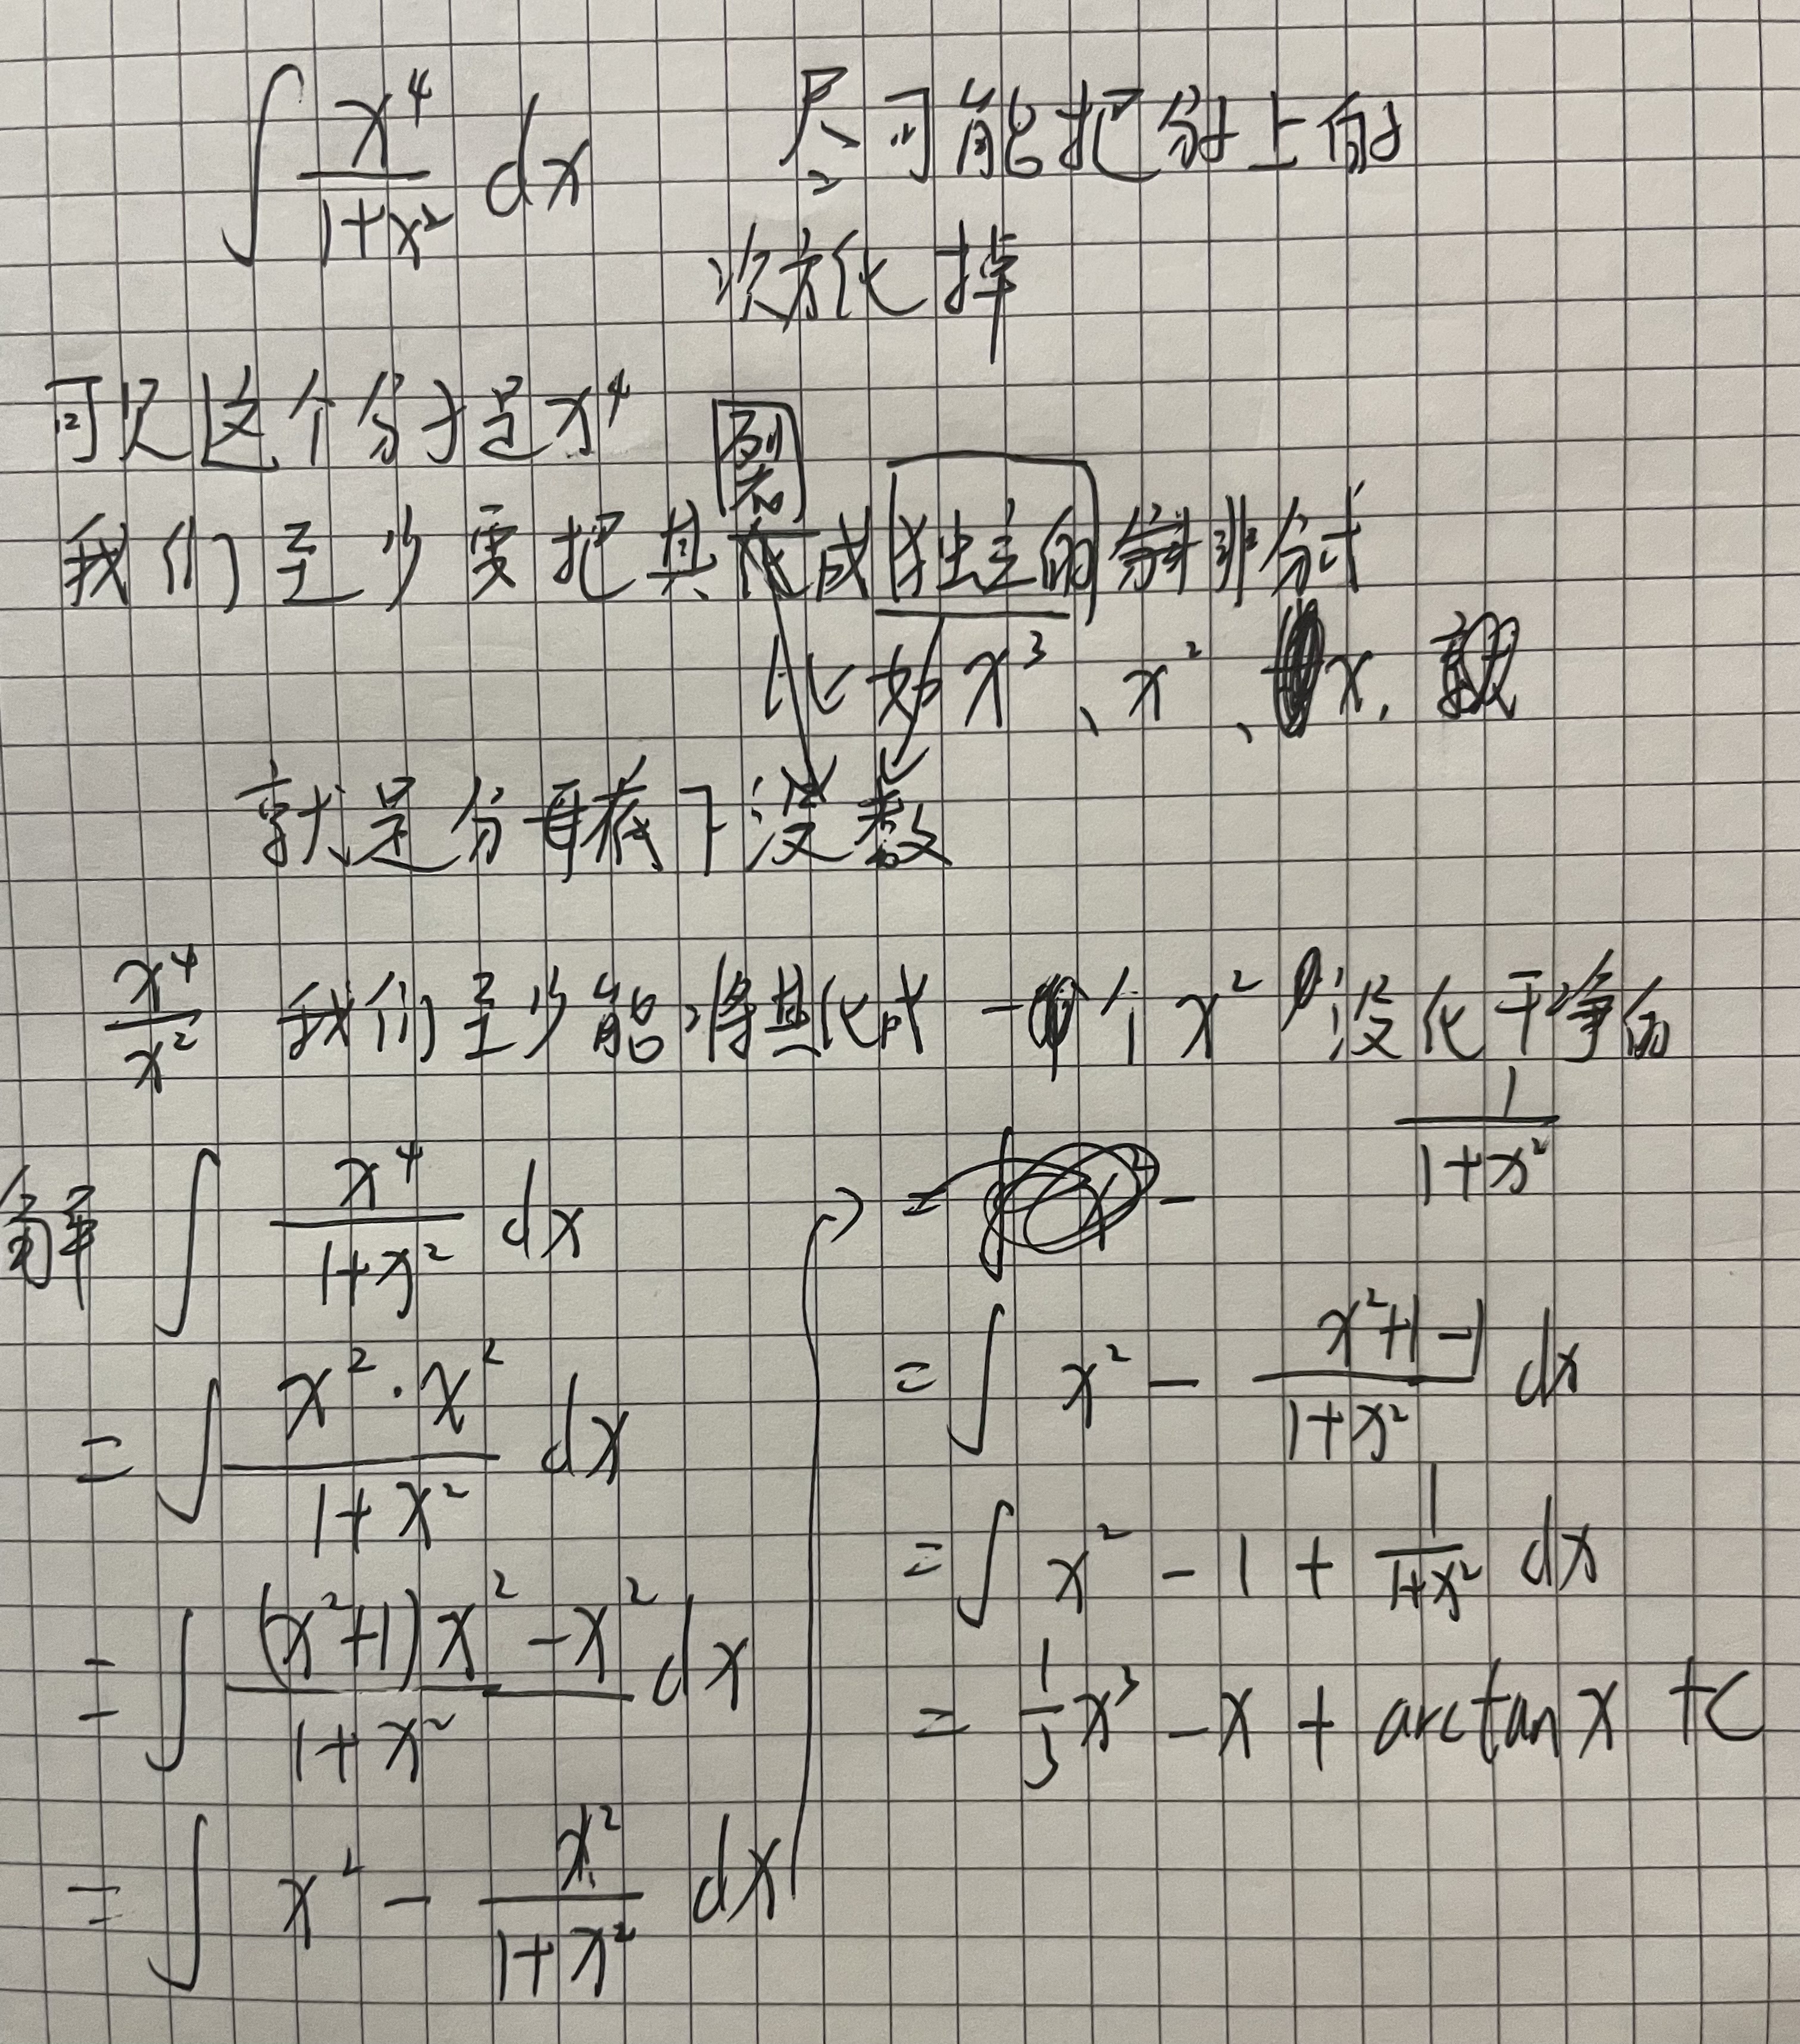 ∫ x⁴/(1+x²) dx 尽可能把分子上的
次方化掉
可见这个分子是x⁴
裂
我们至少要把其化成独立的 非分式
比如x³、x²、x,
就是分母底下没数
x⁴/x² 我们至少能将其化成一个x² 没化干净的
1/(1+x²)
解 ∫ x⁴/(1+x²) dx
= ∫ x²·x²/(1+x²) dx
= ∫ ((x²+1)x²-x²)/(1+x²) dx
= ∫ x² - x²/(1+x²) dx
= ∫ x² - (x²+1-1)/(1+x²) dx
= ∫ x² - 1 + 1/(1+x²) dx
= 1/3 x³ - x + arctan x + C